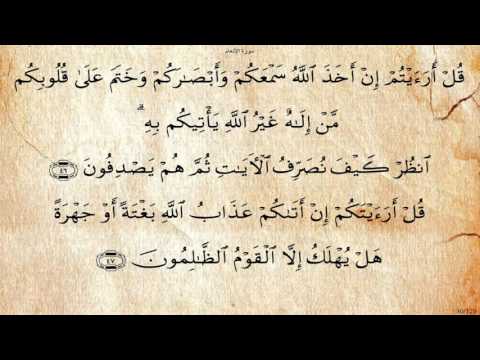 سورة الأنعام
قُلْ أَرَءَيْتُمْ إِنْ أَخَذَ ٱللَّهُ سَمْعَكُمْ وَأَبْصَـٰرَكُمْ وَخَتَمَ عَلَىٰ قُلُوبِكُم
مَّنْ إِلَـٰهٌ غَيْرُ ٱللَّهِ يَأْتِيكُم بِهِ ۗ
ٱنظُرْ كَيْفَ نُصَرِّفُ ٱلْأَيَـٰتِ ثُمَّ هُمْ يَصْدِفُونَ ﴿٤٦﴾
قُلْ أَرَءَيْتَكُمْ إِنْ أَتَىٰكُمْ عَذَابُ ٱللَّهِ بَغْتَةً أَوْ جَهْرَةً
هَلْ يُهْلَكُ إِلَّا ٱلْقَوْمُ ٱلظَّـٰلِمُونَ ﴿٤٧﴾